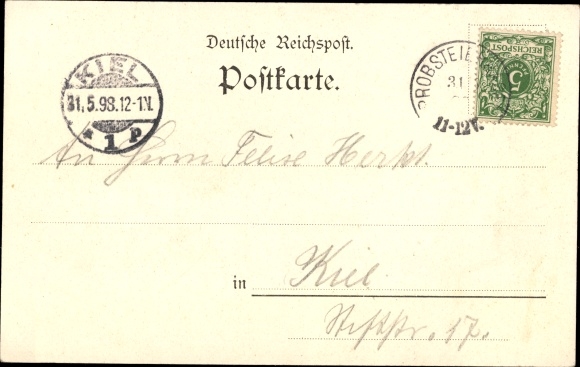 Deutsche Reichspost.
Postkarte.
KIEL
31.5.98.12-1N.
* 1 P
PROBSTEIE
31
11-12V.
REICHSPOST
5
PFENNIG
An Herrn Felix Herkt.
in Kiel
Stiftstr. 17.